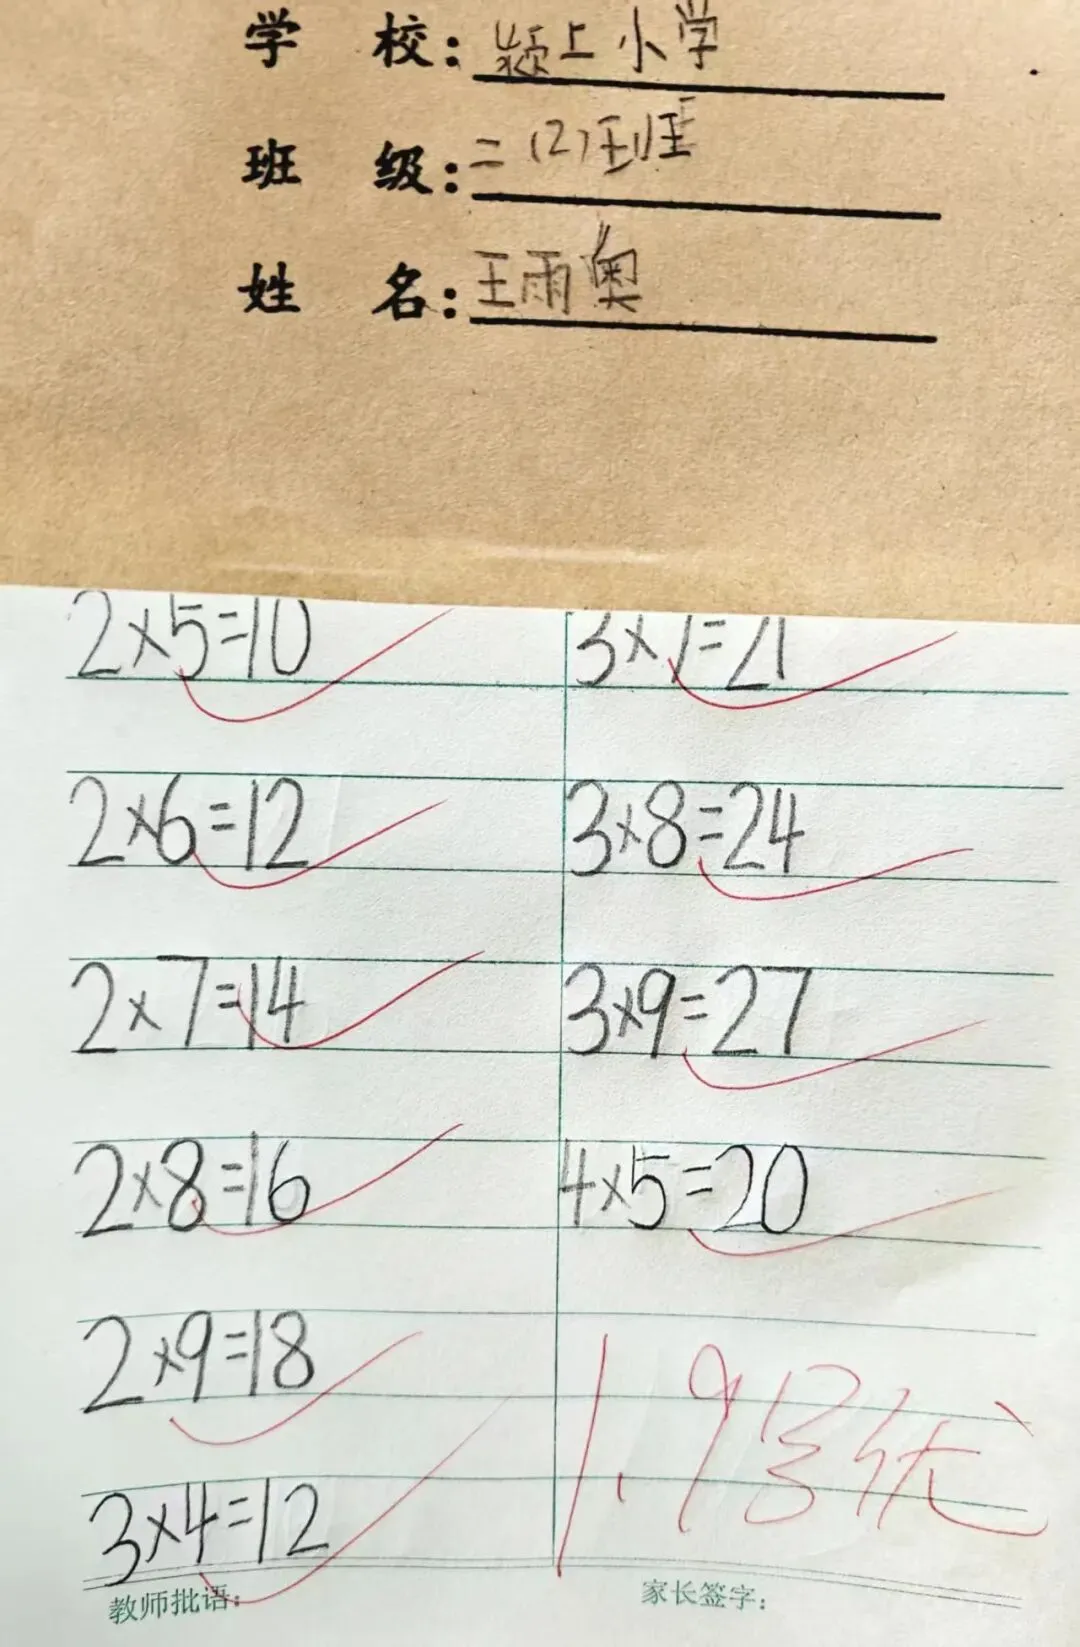 学 校：颍上小学
班 级：二（2）班
姓 名：王雨奥
2×5=10
3×7=21
2×6=12
3×8=24
2×7=14
3×9=27
2×8=16
4×5=20
2×9=18
1.9号优
3×4=12
教师批语：
家长签字：